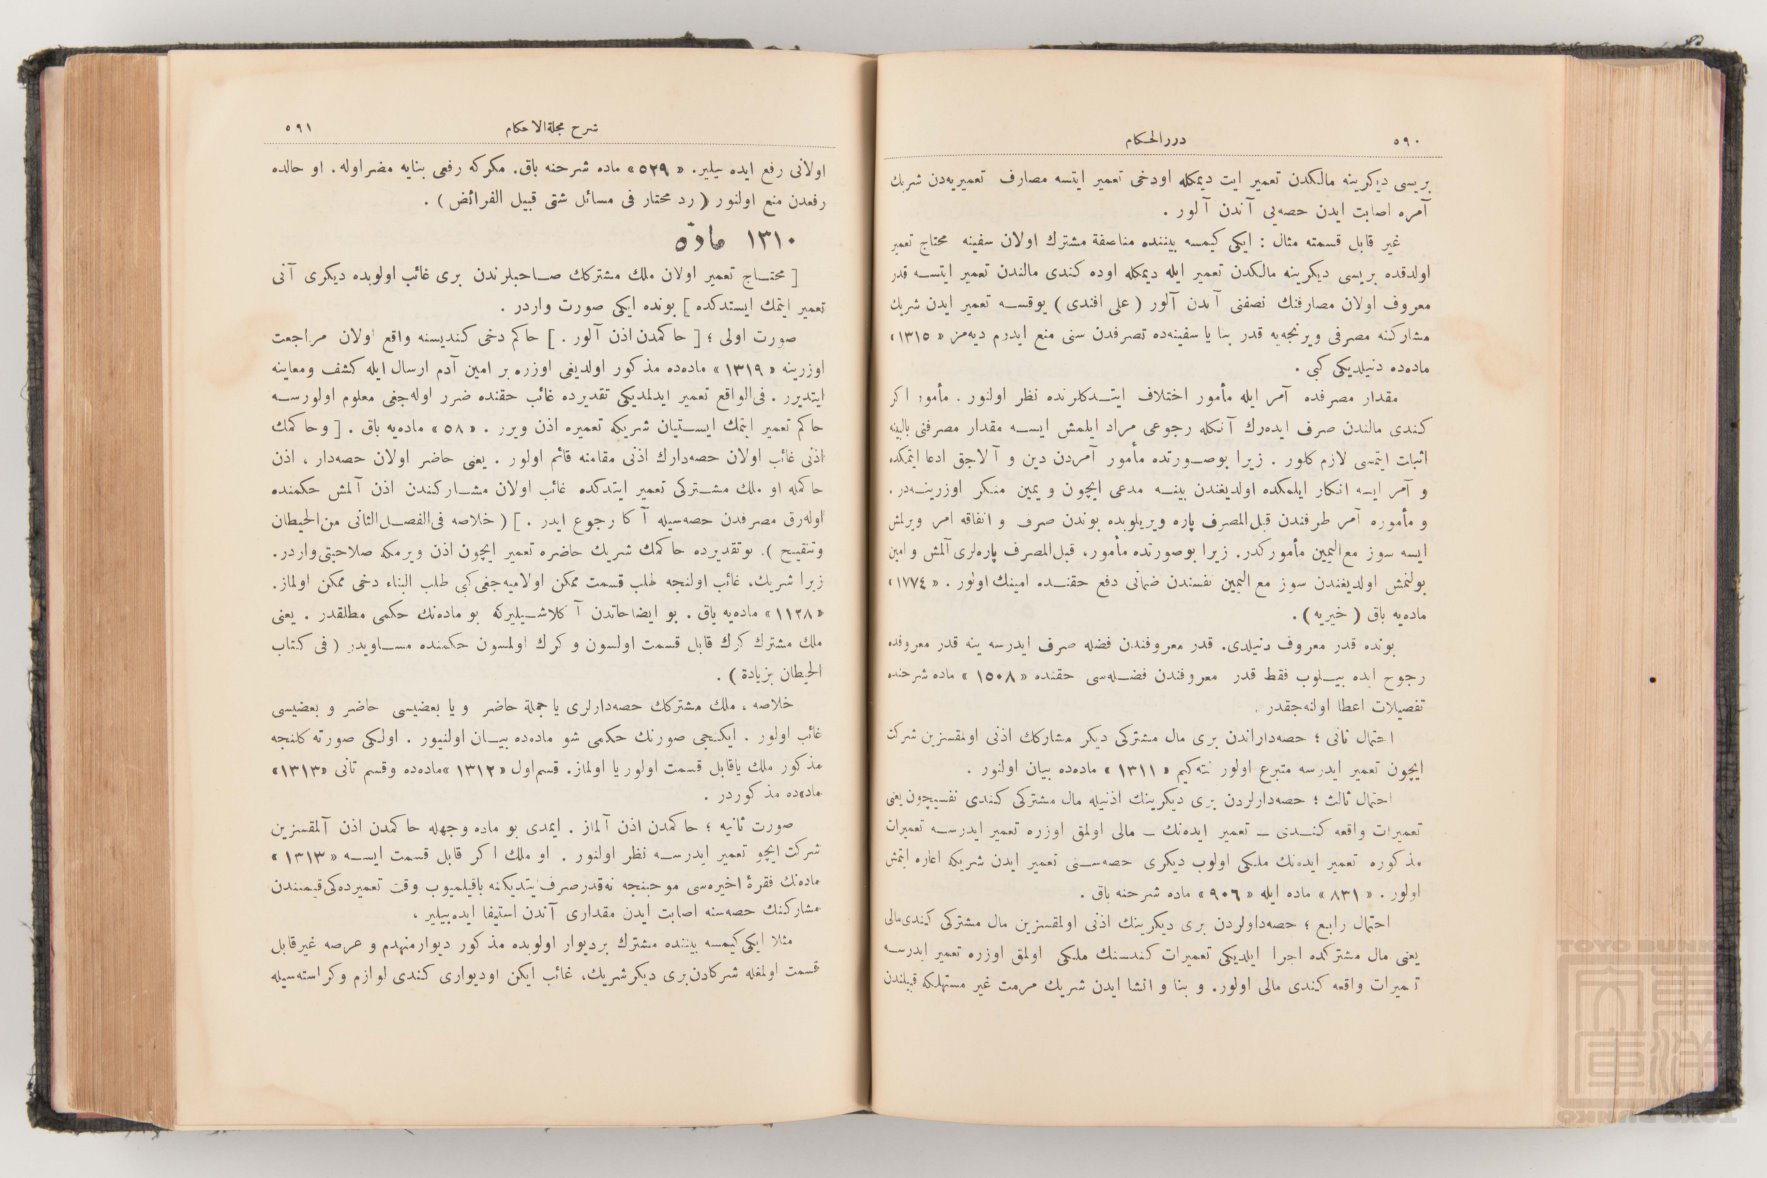 ٥٩٠
دررالحكام
بريسى ديكرينه مالكدن تعمير ايت ديمكله اودخى تعمير ايتسه مصارف تعميريه‌دن شريك
آمره اصابت ايدن حصه‌يى آندن آلور .
غير قابل قسمته مثال : ايكى كيمسه بيننده مناصفة مشترك اولان سفينه محتاج تعمير
اولدقده بريسى ديكرينه مالكدن تعمير ايله ديمكله اوده كندى مالندن تعمير ايتسه قدر
معروف اولان مصارفنك نصفنى آندن آلور ( على افندى ) يوقسه تعمير ايدن شريك
مشاركنه مصرفى ويرنجه‌يه قدر بنا يا سفينه‌ده تصرفدن سنى منع ايدرم ديه‌مز « ١٣١٥ »
ماده‌ده دنيلديكى كبى .
مقدار مصرفده آمر ايله مأمور اختلاف ايتدكلرنده نظر اولنور . مأمور اكر
كندى مالندن صرف ايده‌رك آنكله رجوعى مراد ايلمش ايسه مقدار مصرفنى بالبينه
اثبات ايتمسى لازم كلور . زيرا بوصورتده مأمور آمردن دين و آلاجق ادعا ايتمكده
و آمر ايسه انكار ايلمكده اولديغندن بينه مدعى ايچون و يمين منكر اوزرينه‌در .
و مأموره آمر طرفندن قبل‌المصرف پاره ويريلوبده بوندن صرف و انفاقه امر ويرلمش
ايسه سوز مع‌اليمين مأموركدر. زيرا بوصورتده مأمور، قبل‌المصرف پاره‌لرى آلمش وامين
بولنمش اولديغندن سوز مع اليمين نفسندن ضمانى دفع حقنده امينك اولور . « ١٧٧٤ »
ماده‌يه باق ( خيريه ) .
بونده قدر معروف دنيلدى. قدر معروفندن فضله صرف ايدرسه ينه قدر معروفده
رجوع ايده بيلوب فقط قدر معروفندن فضله‌سى حقنده « ١٥٠٨ » ماده شرحنده
تفصيلات اعطا اولنه‌جقدر .
احتمال ثانى ؛ حصه‌داراندن برى مال مشتركى ديكر مشاركك اذنى اولمقسزين شركت
ايچون تعمير ايدرسه متبرع اولور نته‌كيم « ١٣١١ » ماده‌ده بيان اولنور .
احتمال ثالث ؛ حصه‌دارلردن برى ديكرينك اذنيله مال مشتركى كندى نفسيچون يعنى
تعميرات واقعه كندى – تعمير ايده‌نك – مالى اولمق اوزره تعمير ايدرسه تعميرات
مذكوره تعمير ايده‌نك ملكى اولوب ديكرى حصه‌سنى تعمير ايدن شريكه اعاره ايتمش
اولور . « ٨٣١ » ماده ايله « ٩٠٦ » ماده شرحنه باق .
احتمال رابع ؛ حصه‌داولردن برى ديكرينك اذنى اولمقسزين مال مشتركى كندى‌مالى
يعنى مال مشتركده اجرا ايلديكى تعميرات كندسنك ملكى اولمق اوزره تعمير ايدرسه
تعميرات واقعه كندى مالى اولور. و بنا و انشا ايدن شريك مرمت غير مستهلكه قبيلندن
شرح مجلة‌الاحكام
٥٩١
اولانى رفع ايده بيلير. « ٥٢٩ » ماده شرحنه باق. مكركه رفعى بنايه مضر اوله. او حالده
رفعدن منع اولنور ( رد محتار فى مسائل شتى قبيل الفرائض ) .
١٣١٠ مادّه
[ محتاج تعمير اولان ملك مشتركك صاحبلرندن برى غائب اولوبده ديكرى آنى
تعمير ايتمك ايستدكده ] بونده ايكى صورت واردر .
صورت اولى ؛ [ حاكمدن اذن آلور . ] حاكم دخى كنديسنه واقع اولان مراجعت
اوزرينه « ١٣١٩ » ماده‌ده مذكور اولديغى اوزره بر امين آدم ارسال ايله كشف ومعاينه
ايتديرر . فى‌الواقع تعمير ايدلمديكى تقديرده غائب حقنده ضرر اوله‌جغى معلوم اولورسه
حاكم تعمير ايتمك ايستيان شريكه تعميره اذن ويرر . « ٥٨ » ماده‌يه باق . [ وحاكمك
اذنى غائب اولان حصه‌دارك اذنى مقامنه قائم اولور . يعنى حاضر اولان حصه‌دار ، اذن
حاكمله او ملك مشتركى تعمير ايتدكده غائب اولان مشاركندن اذن آلمش حكمنده
اوله‌رق مصرفدن حصه‌سيله آكا رجوع ايدر . ] ( خلاصه فى‌الفصل‌الثانى من‌الحيطان
وتنقيح ). بوتقديرده حاكمك شريك حاضره تعمير ايچون اذن ويرمكه صلاحيتى واردر.
زيرا شريك، غائب اولنجه طلب قسمت ممكن اولاميه‌جغى كبى طلب البناء دخى ممكن اولماز.
« ١١٢٨ » ماده‌يه باق . بو ايضاحاتدن آكلاشيليركه بو ماده‌نك حكمى مطلقدر . يعنى
ملك مشترك كرك قابل قسمت اولسون و كرك اولمسون حكمنده مساويدر ( فى كتاب
الحيطان بزيادة ) .
خلاصه ، ملك مشتركك حصه‌دارلرى يا جملة حاضر و يا بعضيسى حاضر و بعضيسى
غائب اولور . ايكنجى صورتك حكمى شو ماده‌ده بيان اولنيور . اولكى صورته كلنجه
مذكور ملك ياقابل قسمت اولور يا اولماز. قسم‌اول « ١٣١٢ »ماده‌ده وقسم ثانى «١٣١٣»
ماده‌ده مذكوردر .
صورت ثانيه ؛ حاكمدن اذن آلماز . ايمدى بو ماده وجهله حاكمدن اذن آلمقسزين
شركت ايچو تعمير ايدرسه نظر اولنور . او ملك اكر قابل قسمت ايسه « ١٣١٣ »
ماده‌نك فقرۀ اخيره‌سى موجبنجه نه‌قدرصرف ايتديكنه باقيلميوب وقت تعميرده‌كى قيمتندن
مشاركنك حصه‌سنه اصابت ايدن مقدارى آندن استيفا ايده‌بيلير .
مثلا ايكى كيمسه بيننده مشترك برديوار اولوبده مذكور ديوارمنهدم و عرصه غيرقابل
قسمت اولمغله شركادن‌برى ديكرشريك، غائب ايكن اوديوارى كندى لوازم وكراسته‌سيله
TOYO BUNKO